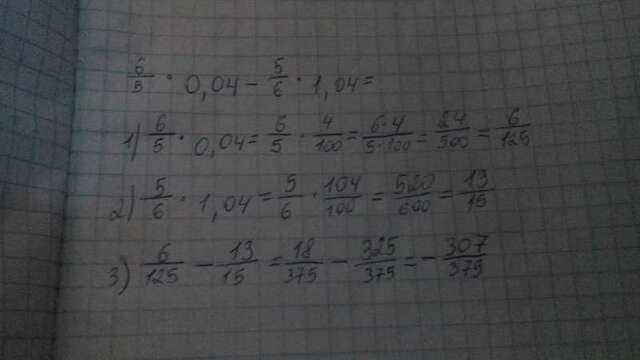 6/5 · 0,04 - 5/6 · 1,04 =
1) 6/5 · 0,04 = 6/5 · 4/100 = 6·4/5·100 = 24/500 = 6/125
2) 5/6 · 1,04 = 5/6 · 104/100 = 520/600 = 13/15
3) 6/125 - 13/15 = 18/375 - 325/375 = - 307/375